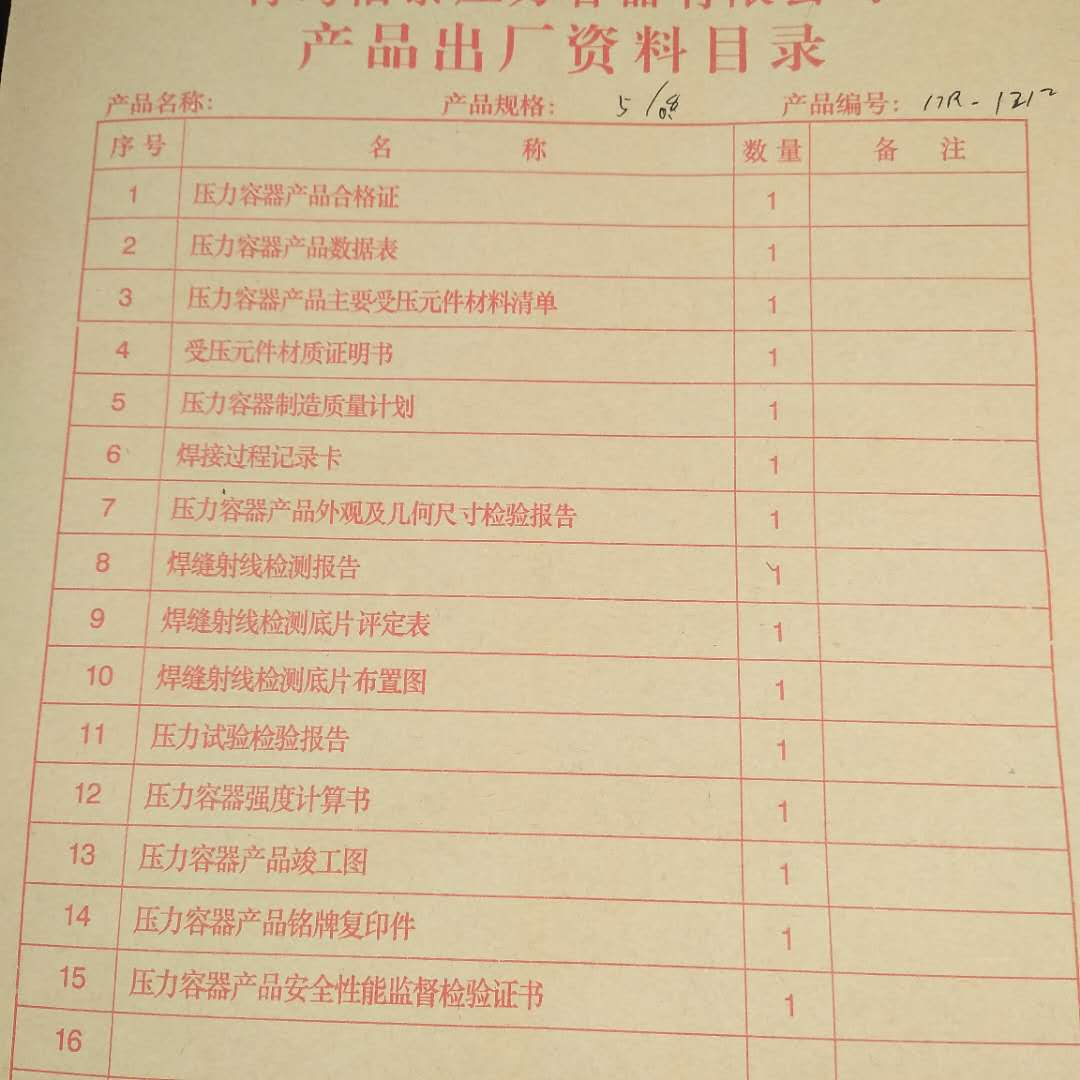 产品出厂资料目录
产品名称: 产品规格: 5/0.8 产品编号: 17R-1212
序号 名 称 数量 备 注
1 压力容器产品合格证 1
2 压力容器产品数据表 1
3 压力容器产品主要受压元件材料清单 1
4 受压元件材质证明书 1
5 压力容器制造质量计划 1
6 焊接过程记录卡 1
7 压力容器产品外观及几何尺寸检验报告 1
8 焊缝射线检测报告 1
9 焊缝射线检测底片评定表 1
10 焊缝射线检测底片布置图 1
11 压力试验检验报告 1
12 压力容器强度计算书 1
13 压力容器产品竣工图 1
14 压力容器产品铭牌复印件 1
15 压力容器产品安全性能监督检验证书 1
16